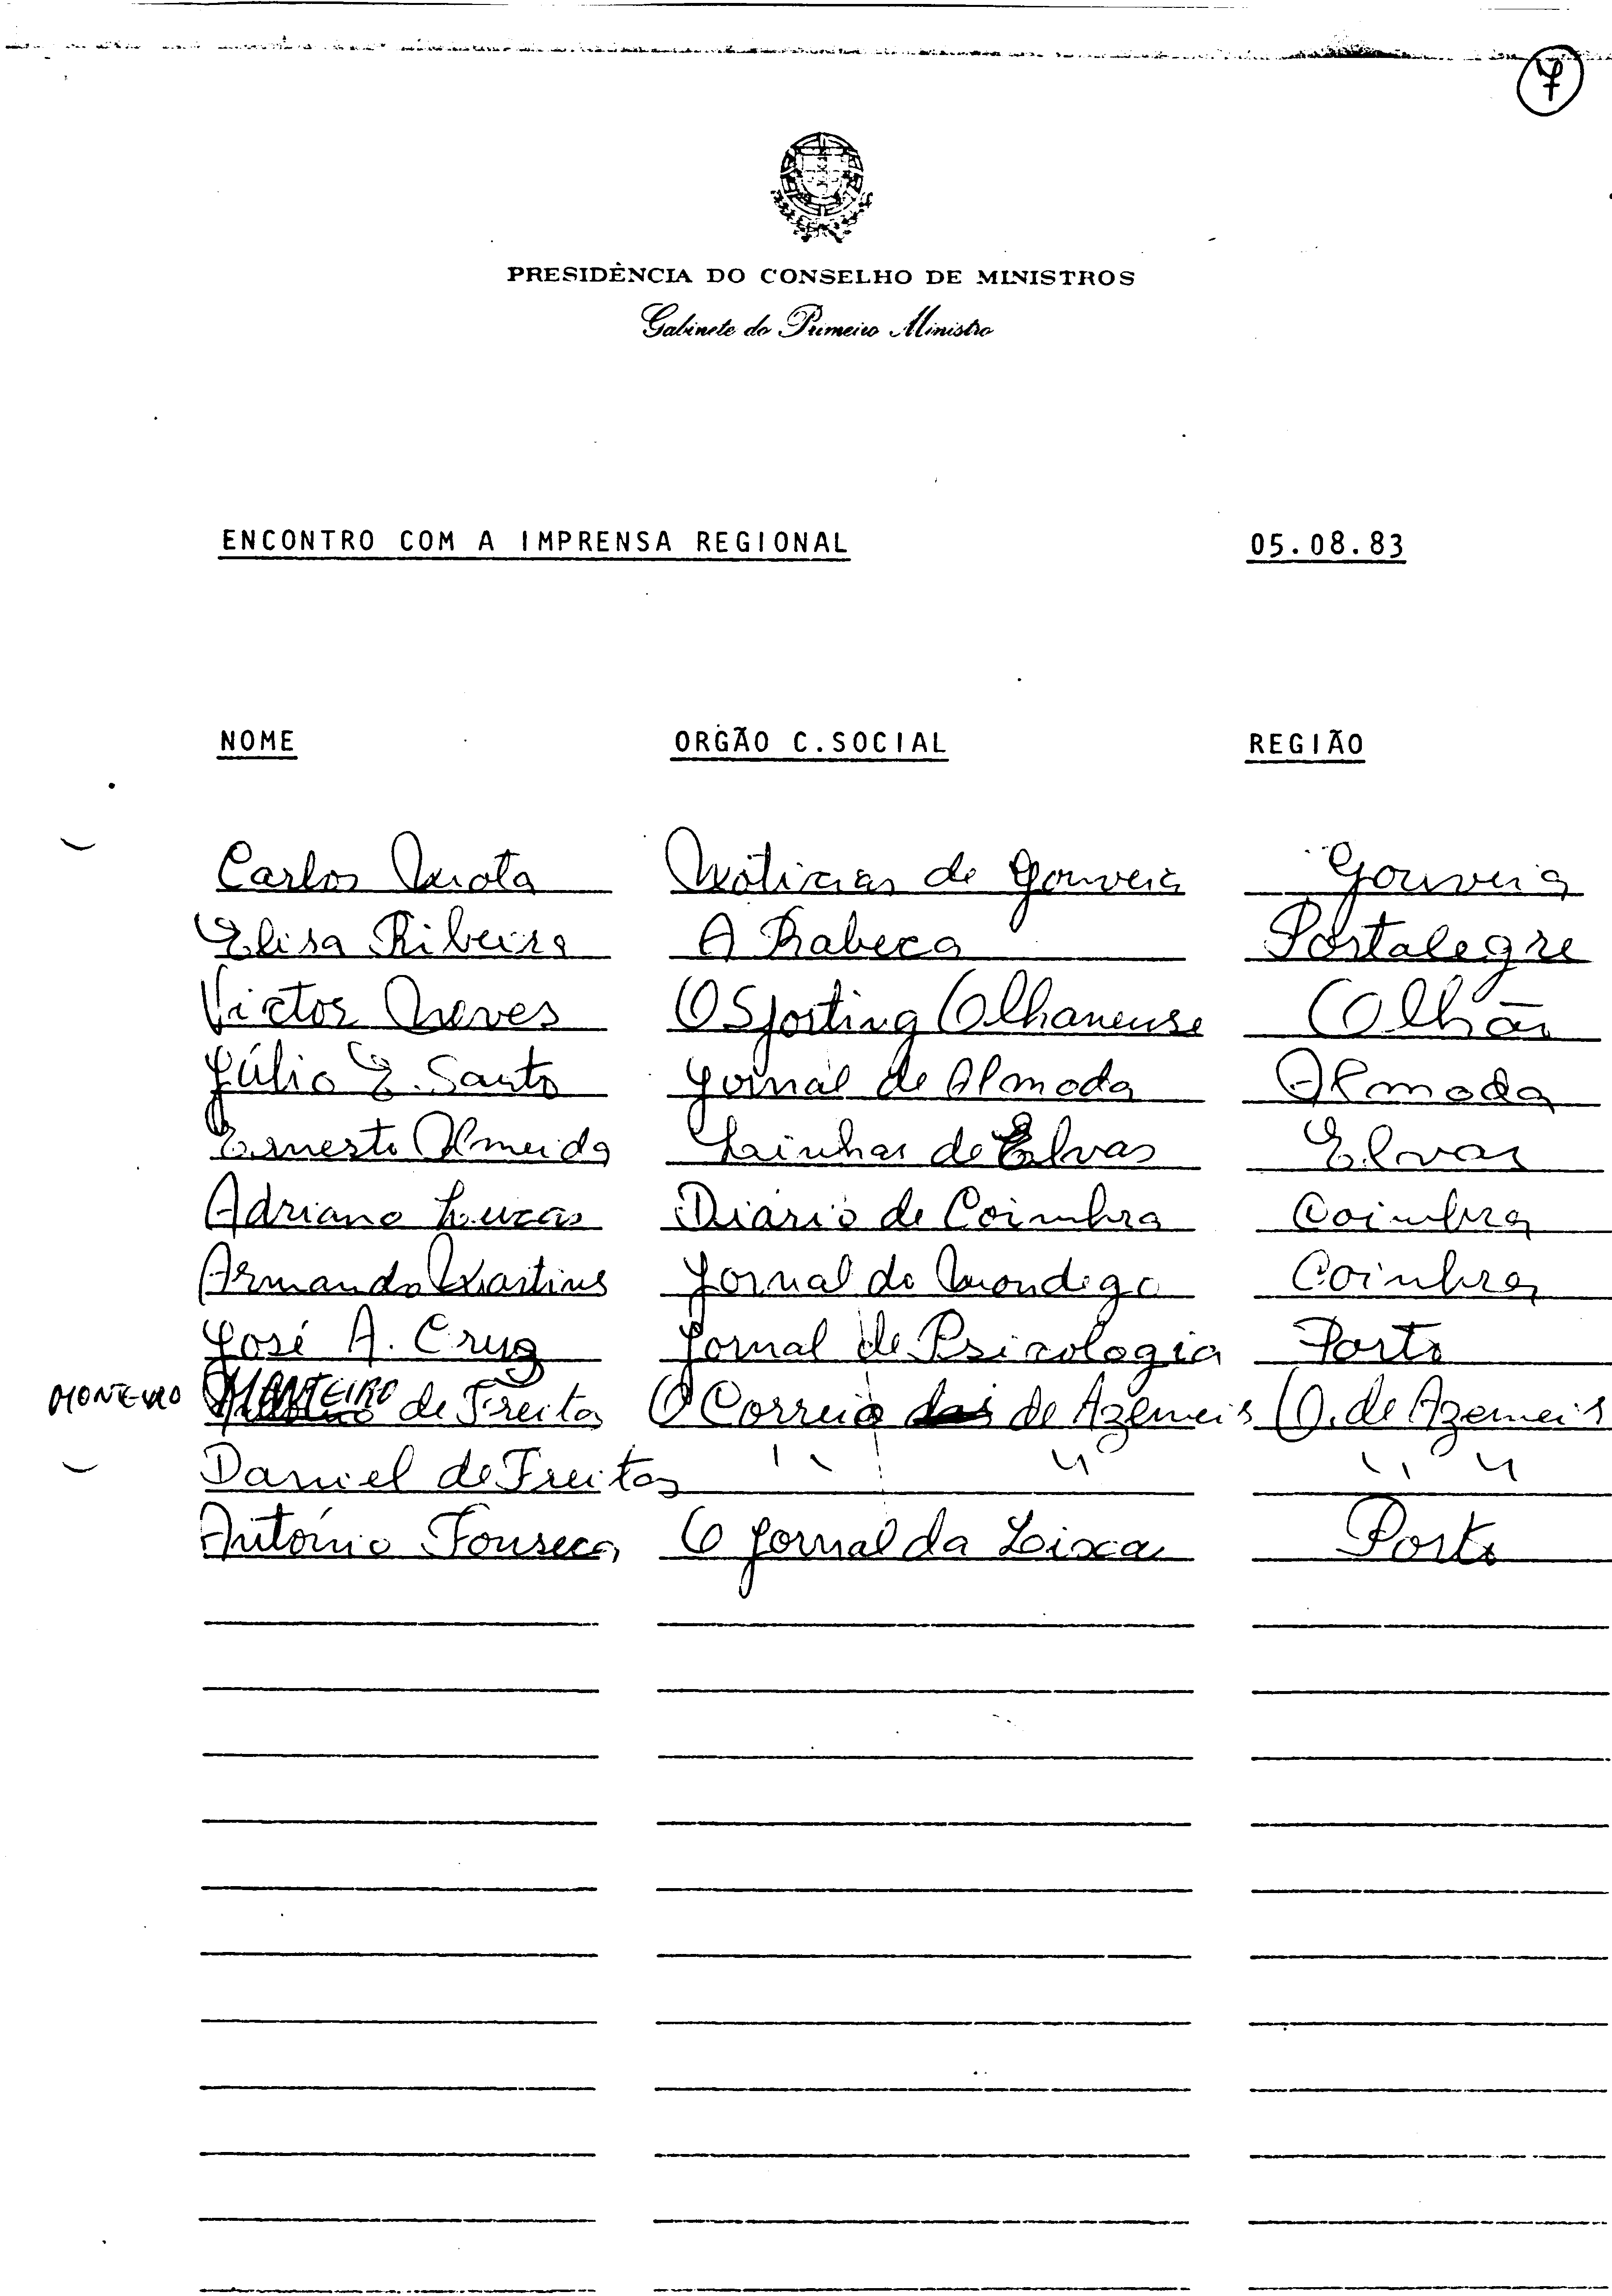 7
PRESIDÊNCIA DO CONSELHO DE MINISTROS
Gabinete do Primeiro Ministro
ENCONTRO COM A IMPRENSA REGIONAL 05.08.83
NOME ORGÃO C.SOCIAL REGIÃO
Carlos Mota Notícias de Gouveia Gouveia
Elisa Ribeiro A Rabeca Portalegre
Victor Neves O Sporting Olhanense Olhão
Júlio E. Santo Jornal de Almada Almada
Ernesto Almeida Linhas de Elvas Elvas
Adriano Lucas Diário de Coimbra Coimbra
Armando Martins Jornal do Mondego Coimbra
José A. Cruz Jornal de Psicologia Porto
MONTEIRO MONTEIRO de Freitas O Correio de Azemeis O. de Azemeis
Daniel de Freitas " " " "
António Fonseca O Jornal da Lixa Porto